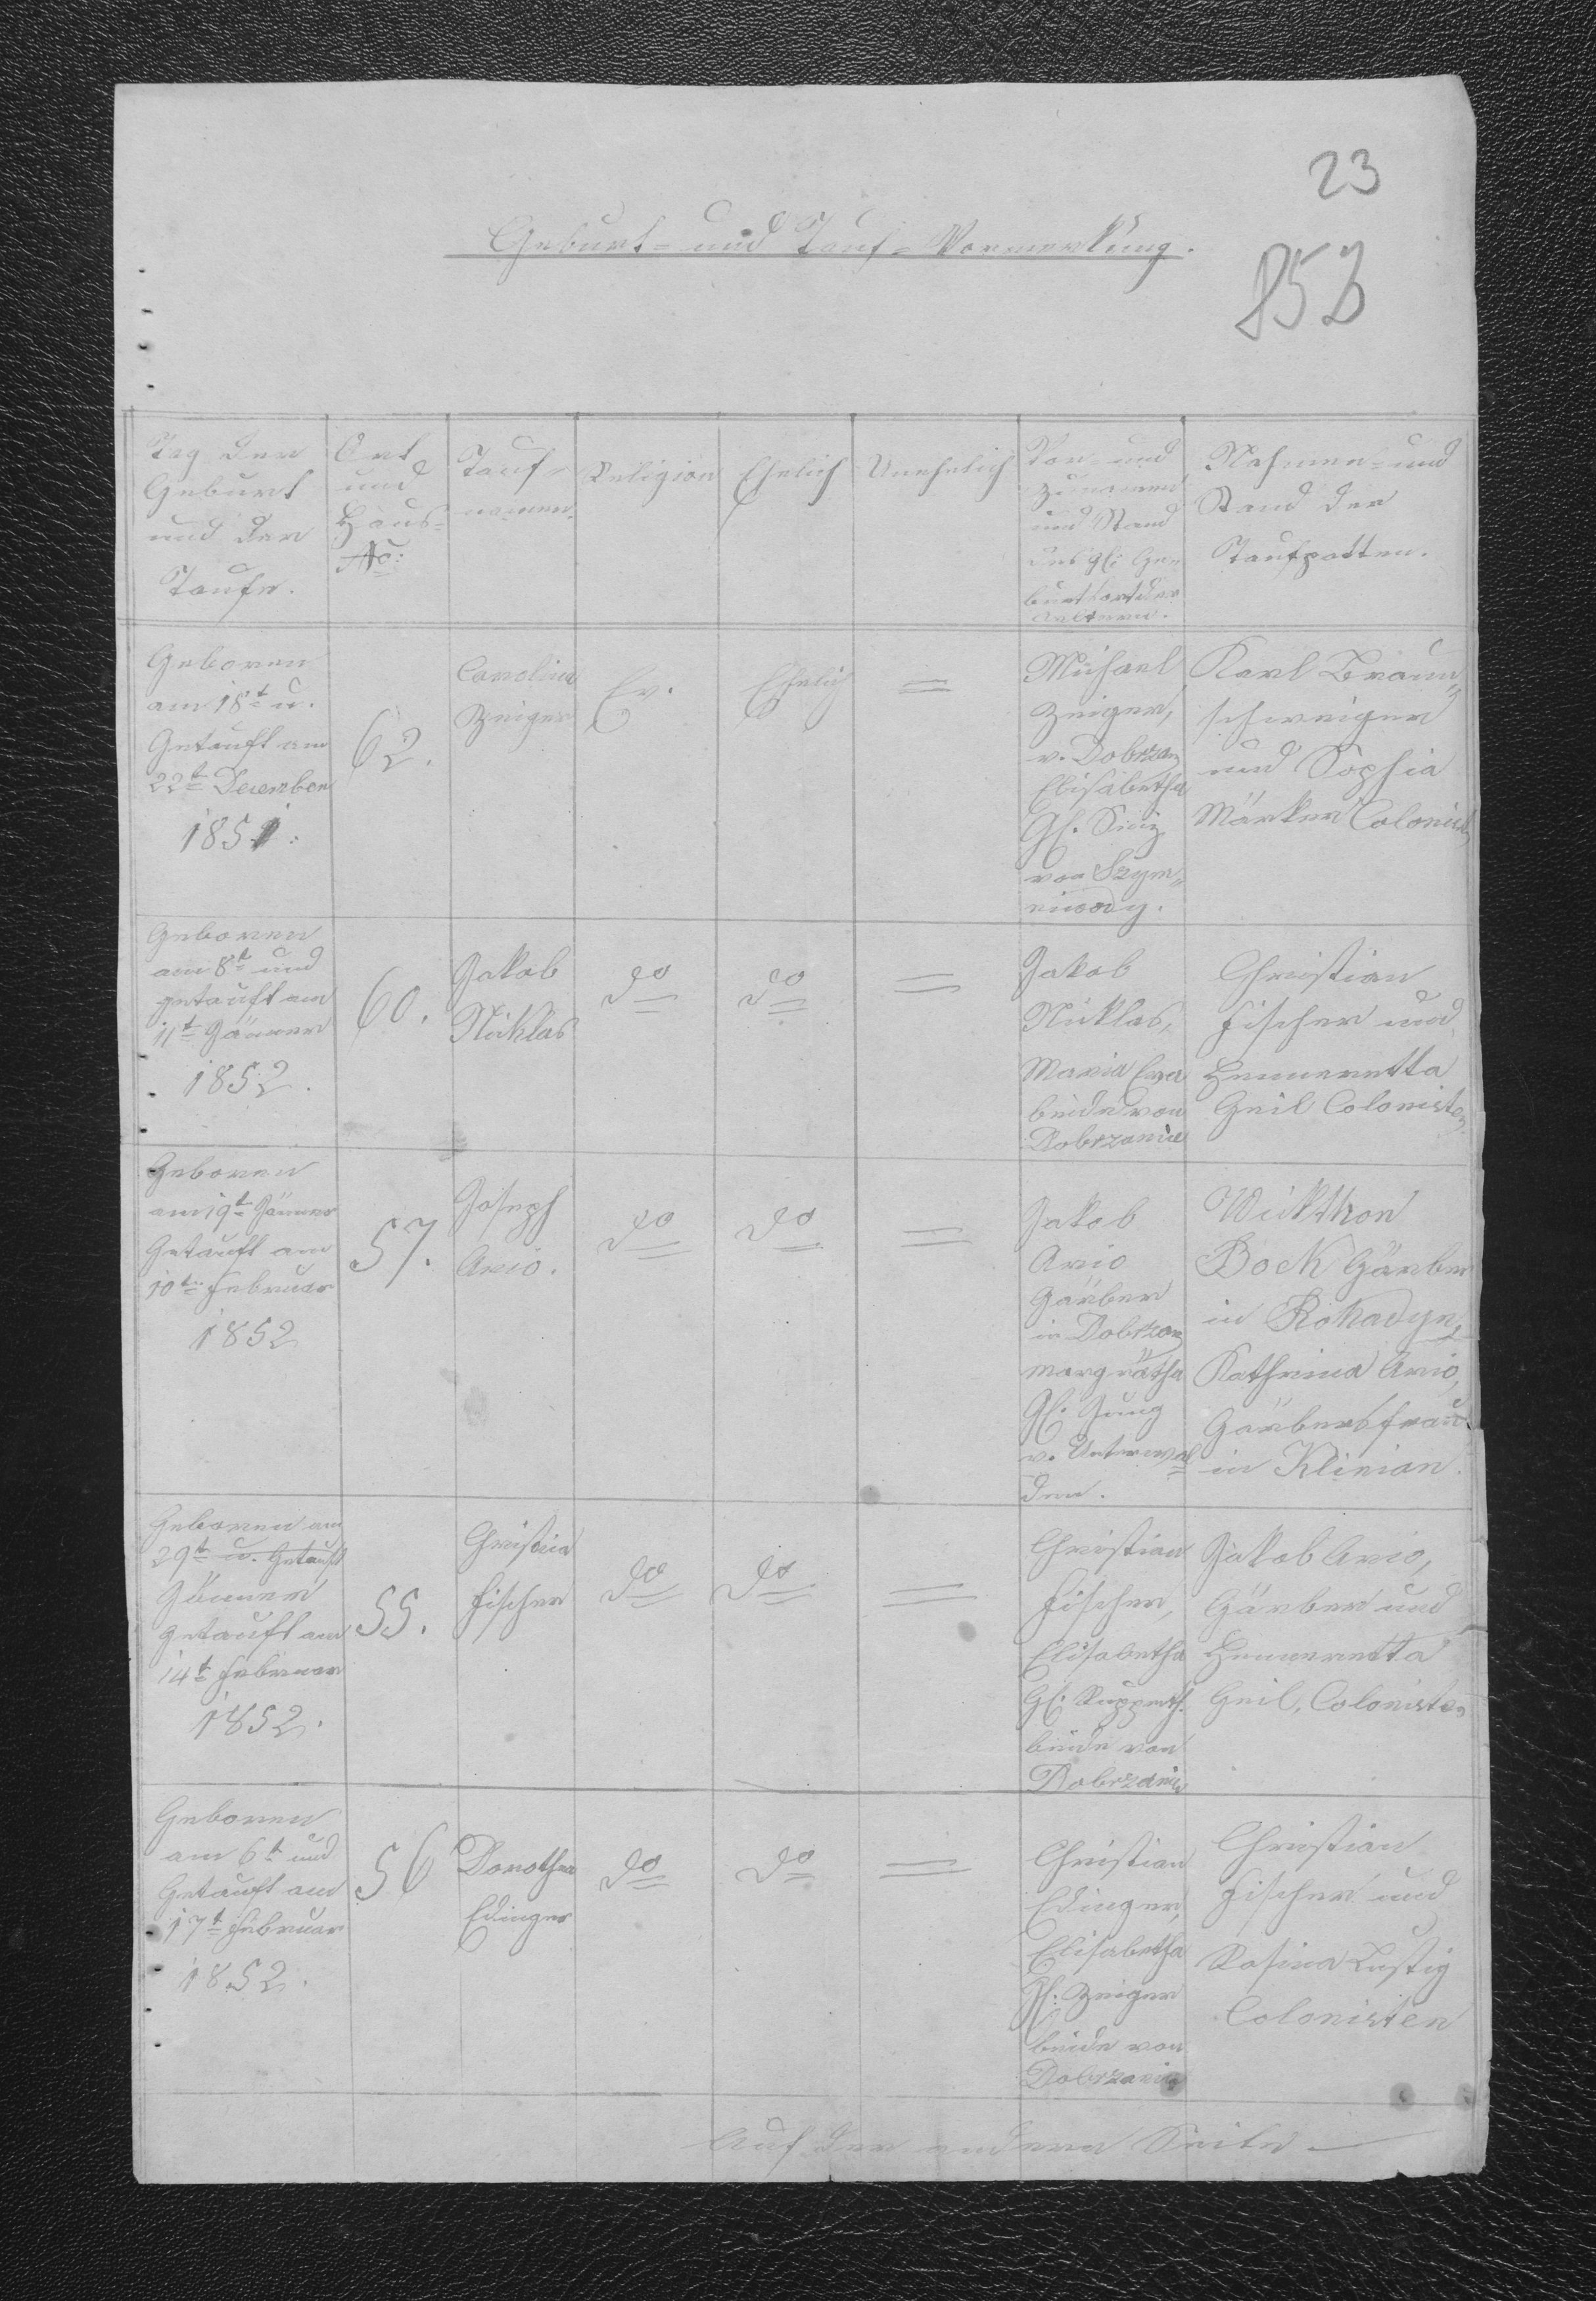 23
Geburt- und Tauf-Vormerkung.
853
Tag der
Geburt
und der
Taufe.
Ort
und
Haus-
No:
Tauf-
namen.
Religion
Ehelich
Unehelich
Vor- und
Zunamen
und Stand
des gl: Ge-
burtsort der
Aeltern.
Nahmen- und
Stand der
Taufpatten.
Geboren
am 18t u.
Getauft am
22t December
1851.
62.
Carolina
Zeiger
Ev.
Ehelich
=
Michael
Zeiger,
v. Dobrzan
Elisabetha
Gl.
von Szym-
Karl Braun-
schweiger
und Sophia
Märker Colonist
Geboren
am 8t und
getauft am
11t Jänner
1852.
60.
Jakob
Niklas
do
do
=
Jakob
Niklas,
Maria Eva
beide von
Dobrzanica
Christian
Fischer und
Henneretta
Geil Colonisten
Geboren
am 19t Jänner
Getauft am
10t Februar
1852
57.
Joseph
Ario.
do
do
=
Jakob
Ario
Gärber
in Dobrzan
Margrätha
Gl. Jung
v. Unterwal=
den.
Wickthor
Bock Gärber
in Rohadyn,
Kathrina Ario,
Gärbersfrau
in Klinian.
Geboren am
29t u. Getauft
Jänner
getauft am
14t Februar
1852.
55.
Christina
Fischer
do
do
=
Christian
Fischer,
Elisabetha
Gl: Rupperth.
beide von
Dobrzanic
Jakob Ario,
Gärber und
Henneretta
Geil, Colonisten
Geboren
am 6t und
Getauft am
17t Februar
1852.
56
Dorothea
Edinger
do
do
=
Christian
Edinger,
Elisabetha
Gl: Zeiger
beide von
Dobrzanica
Christian
Fischer und
Rosina Lustig
Colonisten
Auf der andern Seite